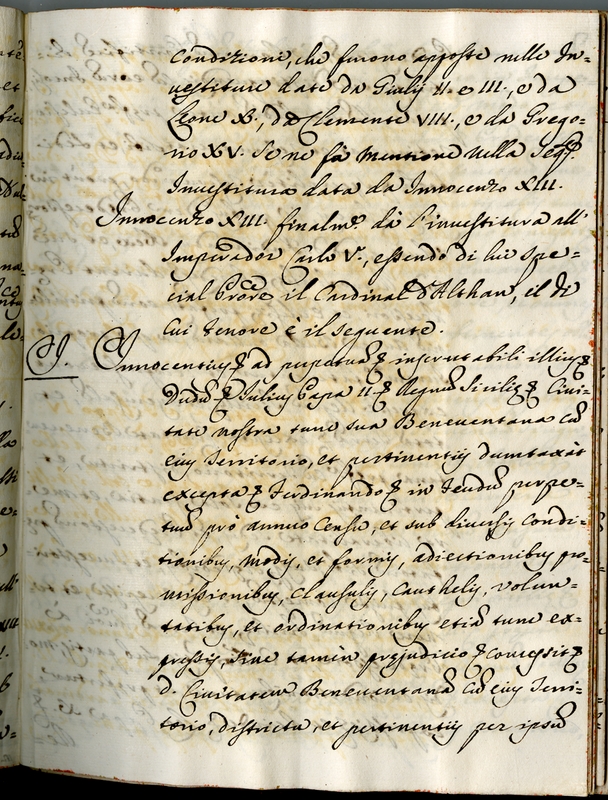 Condizione, che furono apposte nelle In=
vestiture date da Giulij II. e III., e da
Leone X.°, da Clemente VIII., e da Grego=
rio XV. Se ne fà mentione nella Seg.
Investitura data da Innocenzo XIII.
Innocenzo XIII. finalm.e dà l'investitura all'
Imperador Carlo V.°, essendo di lui spe=
cial Procre il Cardinal d'Althan, il di
cui tenore è il seguente.
J. Innocentius & ad perpetuã & inscrutabili illius &
Dudũ & Julius Papa II & Regnũ Sicilie & Civi=
tate nostra tunc sua Beneventana cũ
eius Territorio, et pertinentijs dumtaxàt
excepta & Ferdinando & in feudũ perpe=
tuũ prò annuo Censu, et sub diversis Condi=
tionibus, modis, et formis, adiectionibus pro=
missionibus, Clausulis, Cauthelis, volun=
tatibus, et ordinationibus etiã tunc ex=
pressis, sine tamèn prejudicio & concessit &
d. Civitatem Beneventanã cũ eius Terri=
torio, districtu, et pertinentijs per ipsũ